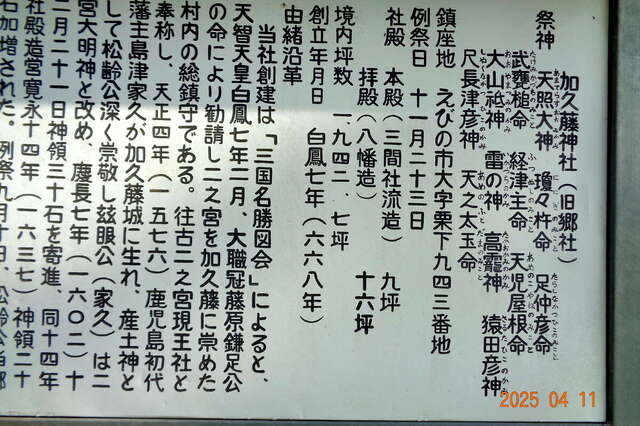 加久藤神社(旧郷社)
祭神 天照大神 瓊々杵命 足仲彦命
武甕槌命 経津主命 天児屋根命
大山祗神 雷の神 高龗神 猿田彦神
尺長津彦神 天之太玉命
鎮座地 えびの市大字栗下九四三番地
例祭日 十一月二十三日
社殿 本殿(三間社流造) 九坪
拝殿(八幡造) 十六坪
境内坪数 一、九四二、七坪
創立年月日 白鳳七年(六六八年)
由緒沿革
当社創建は「三国名勝図会」によると、
天智天皇白鳳七年二月、大職冠藤原鎌足公
の命により勧請し二之宮を加久藤に崇めた
村内の総鎮守である。往古二之宮現王社と
奉称し、天正四年(一五七六)鹿児島初代
藩主島津家久が加久藤城に生れ、産土神と
して松齢公深く崇敬し玆眼公(家久)は二
宮大明神と改め、慶長七年(一六〇二)十
二月二十一日神領三十石を寄進、同十四年
社殿造営寛永十四年(一六三七)神領二十
石加増された。例祭九月十日、松齢公
2025 04 11